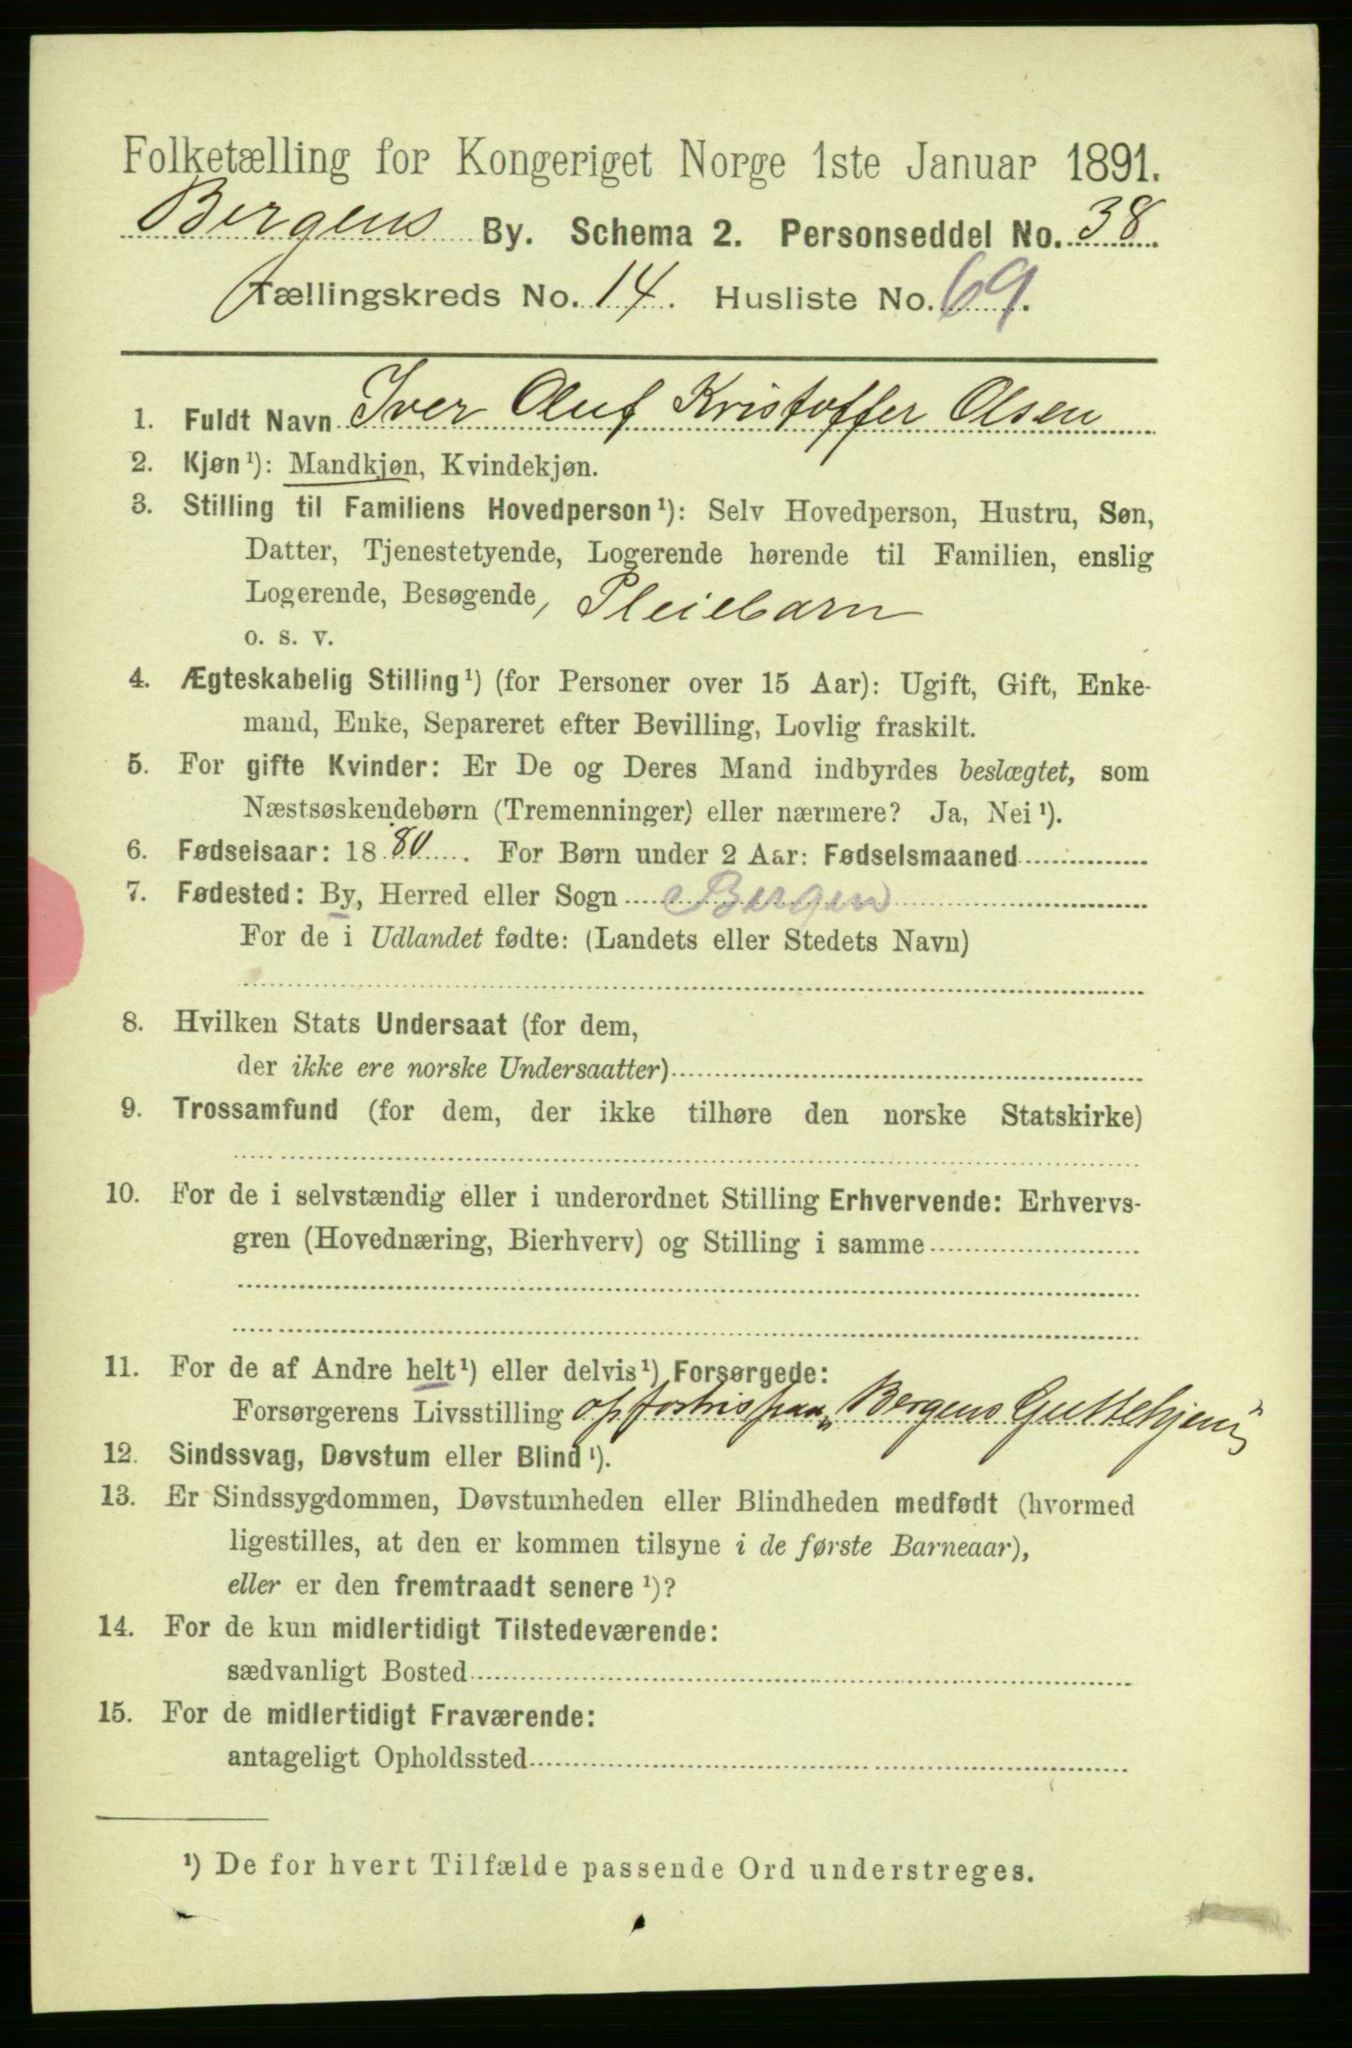 Folketælling for Kongeriget Norge 1ste Januar 1891.
Bergens By. Schema 2. Personseddel No. 38.
Tællingskreds No. 14. Husliste No. 69.
1. Fuldt Navn Iver Oluf Kristoffer Olsen
2. Kjøn¹): Mandkjøn, Kvindekjøn.
3. Stilling til Familiens Hovedperson¹): Selv Hovedperson, Hustru, Søn,
Datter, Tjenestetyende, Logerende hørende til Familien, enslig
Logerende, Besøgende, Pleiebarn
o. s. v.
4. Ægteskabelig Stilling¹) (for Personer over 15 Aar): Ugift, Gift, Enke-
mand, Enke, Separeret efter Bevilling, Lovlig fraskilt.
5. For gifte Kvinder: Er De og Deres Mand indbyrdes beslægtet, som
Næstsøskendebørn (Tremenninger) eller nærmere? Ja, Nei¹).
6. Fødselsaar: 1880. For Børn under 2 Aar: Fødselsmaaned
7. Fødested: By, Herred eller Sogn Bergen
For de i Udlandet fødte: (Landets eller Stedets Navn)
8. Hvilken Stats Undersaat (for dem,
der ikke ere norske Undersaatter)
9. Trossamfund (for dem, der ikke tilhøre den norske Statskirke)
10. For de i selvstændig eller i underordnet Stilling Erhvervende: Erhvervs-
gren (Hovednæring, Bierhverv) og Stilling i samme
11. For de af Andre helt¹) eller delvis¹) Forsørgede:
Forsørgerens Livsstilling opfostris paa „Bergens Guttehjem"
12. Sindssvag, Døvstum eller Blind¹).
13. Er Sindssygdommen, Døvstumheden eller Blindheden medfødt (hvormed
ligestilles, at den er kommen tilsyne i de første Barneaar),
eller er den fremtraadt senere¹)?
14. For de kun midlertidigt Tilstedeværende:
sædvanligt Bosted
15. For de midlertidigt Fraværende:
antageligt Opholdssted
¹) De for hvert Tilfælde passende Ord understreges.